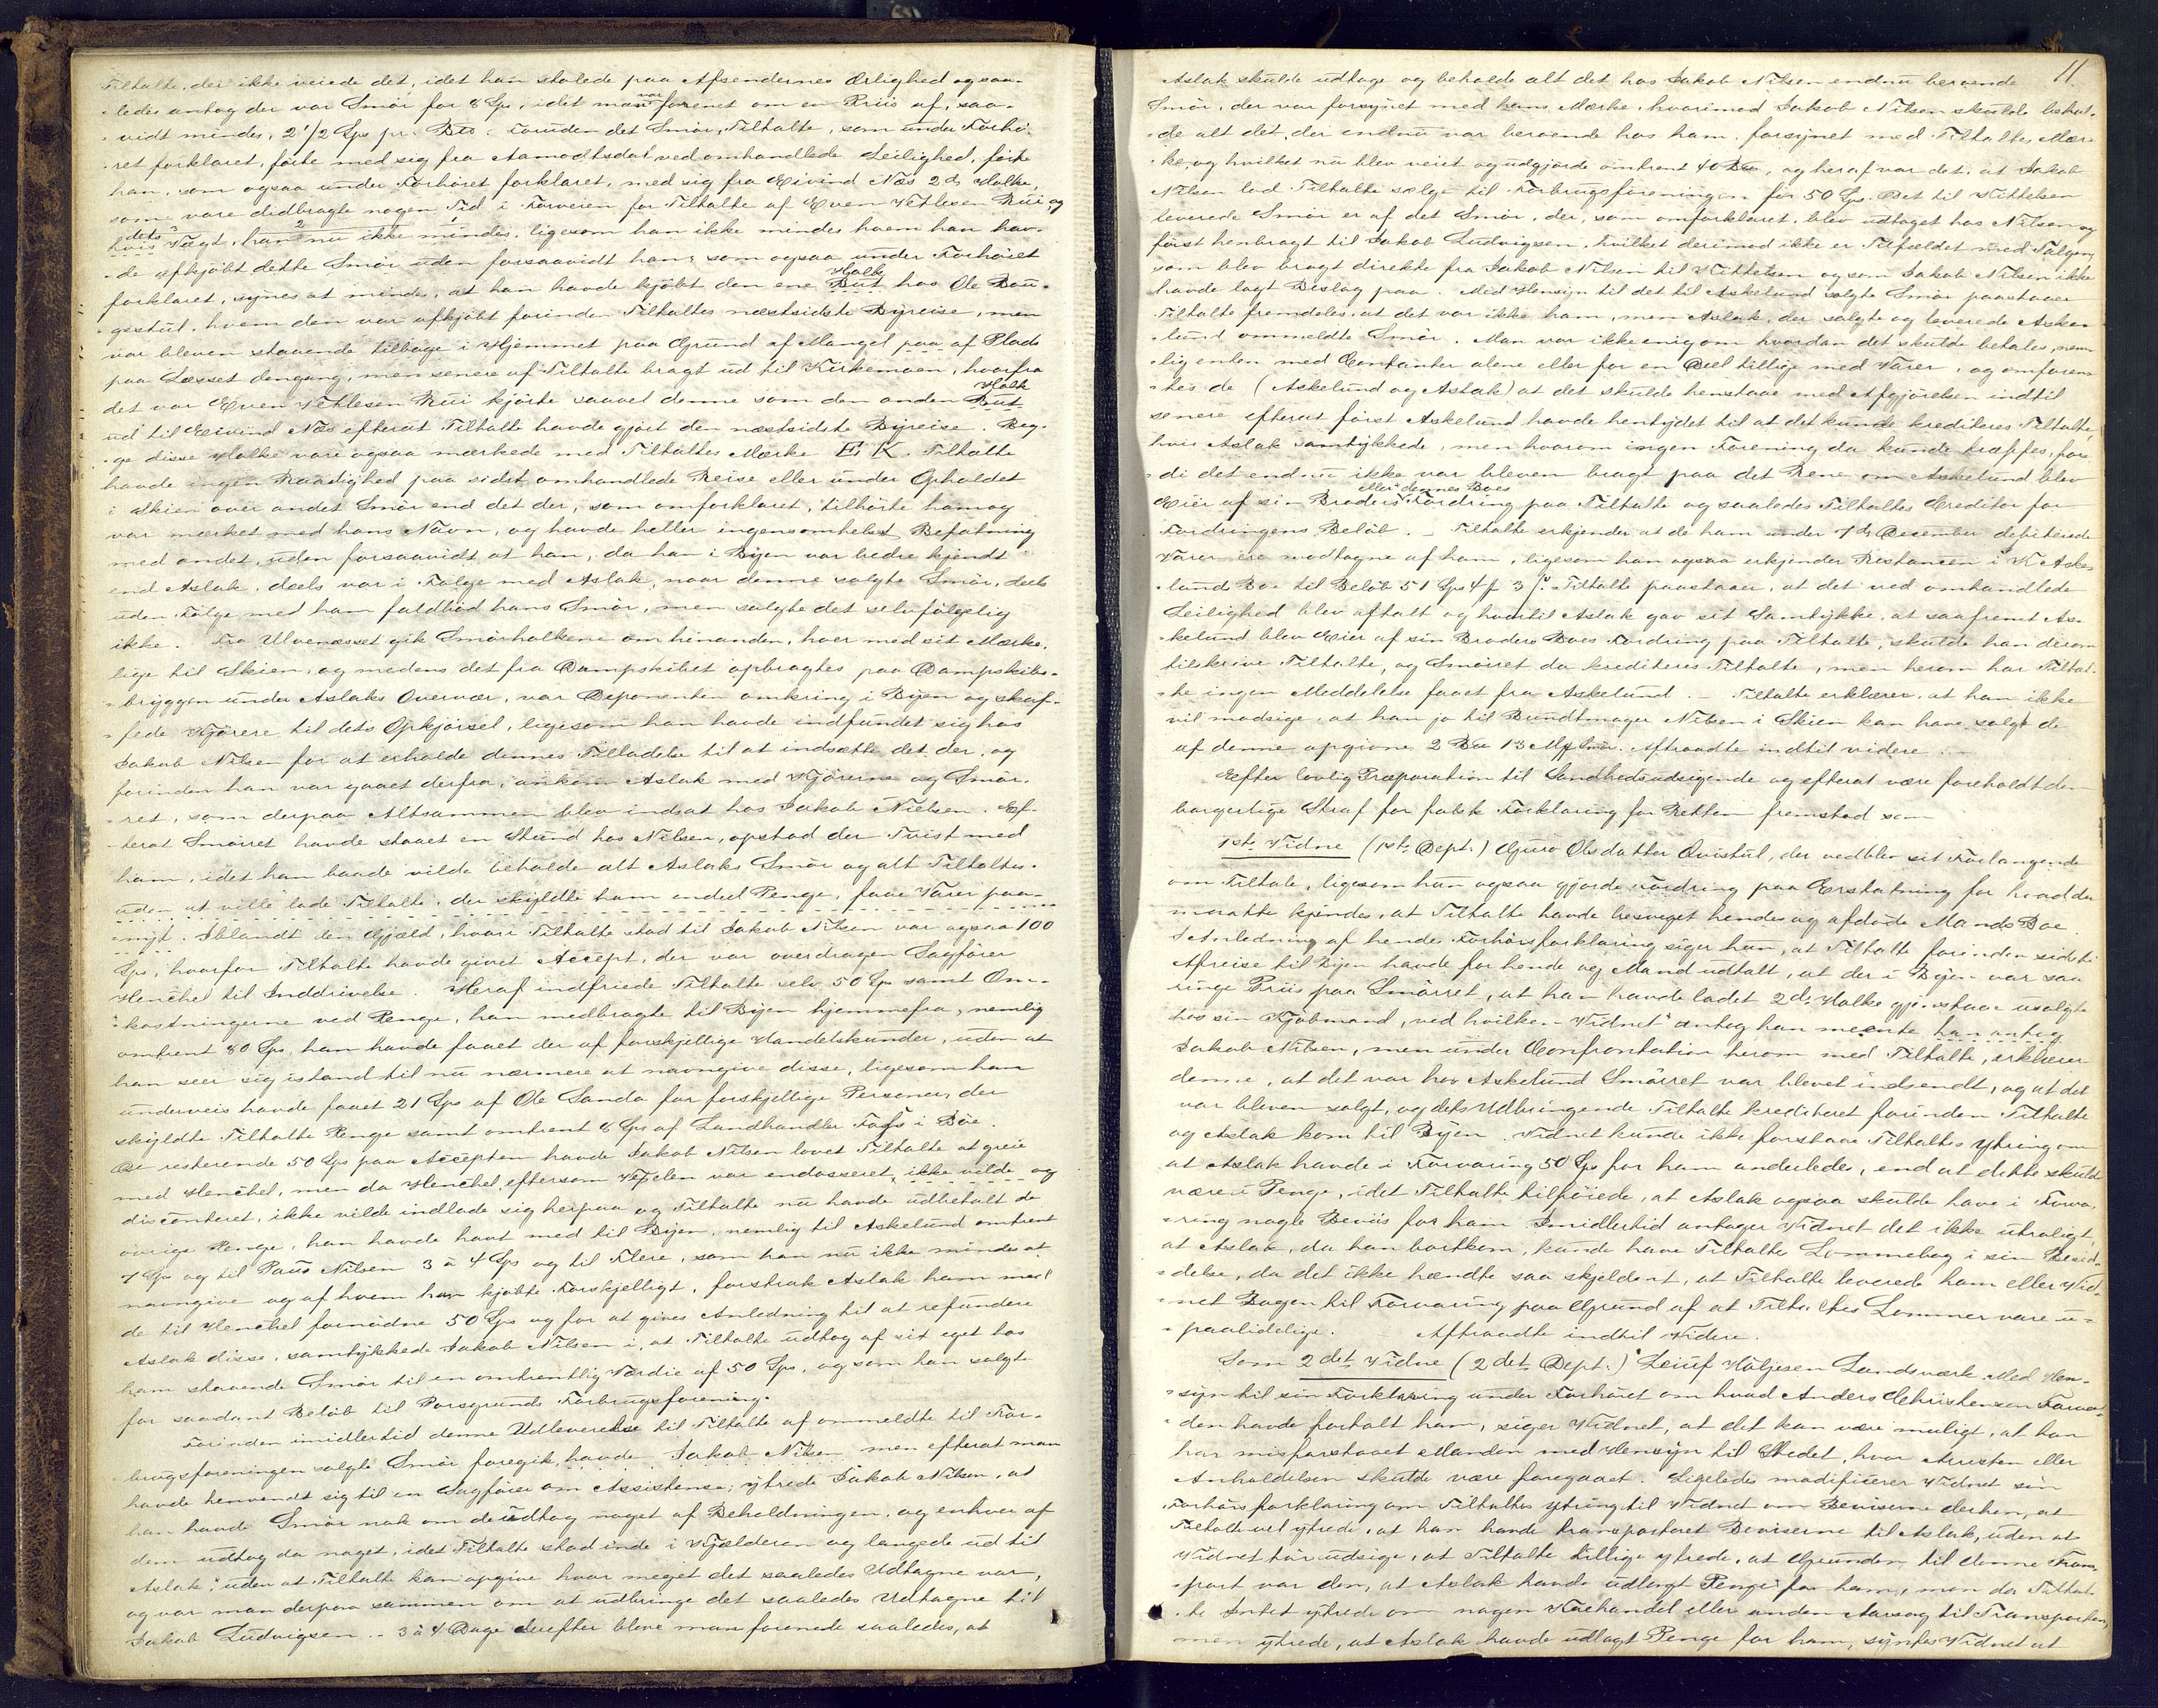 Tiltalte, der ikke veiede det, idet han stolede paa Afsendernes Ærlighed ogsaa-
ledes antog der var Smör for 8 Sps, idet man var forenet om en Priis af, saa-
vidt mindes, 2 1/2 Sps pr. Bu. Foruden det Smör, Tiltalte, som under Forhö-
ret forklaret, förte med sig fra Aamodtsdal ved omhandlede Leilighed, förte
han, som ogsaa under Forhöret forklaret, med sig fra Eivind Næs 2de Holke,
som vare didbragte nogen Tid i Forveien for Tiltalte af Even Vetlesen Rui, og
dets Vægt, han nu ikke mindes, ligesom han ikke mindes hvem han hav-
de afkjöbt dette Smör uden forsaavidt han, som ogsaa under Forhöret
forklaret, synes at mindes, at han havde kjöbt den ene But Holk hos Ole Bau-
gestul, hvem den var afkjöbt forinden Tiltaltes næstsidste Byreise, men
var bleven staaende tilbage i Hjemmet paa Grund af Mangel paa af Plads
paa Læsset dengang, men senere af Tiltalte bragt ud til Kirkemoen, hvorfra
det var Even Vetlesen Rui kjörte saavel denne som den anden But Holk
ud til Eivind Næs efterat Tiltalte havde gjort den næstsidste Byreise. Beg-
ge disse Holke vare ogsaa mærkede med Tiltaltes Mærke E K. Tiltalte
havde ingen Raadighed paa sidst omhandlede Reise eller under Opholdet
i Skien over andet Smör end det der, som omforklaret, tilhörte ham og
var mærket med hans Navn, og havde heller ingensomhelst Befatning
med andet, uden forsaavidt at han, da han i Byen var bedre kjendt
end Aslak, deels var i Fölge med Aslak, naar denne solgte Smör, deels
uden Fölge med ham falböd hans Smör, men solgte det selvfölgelig
ikke. Fra Ulvenæsset gik Smörholkene om hinanden, hver med sit Mærke,
lige til Skien, og medens det fra Dampskibet opbragtes paa Dampskibs-
bryggen under Aslaks Overvær, var Deponenten omkring i Byen og skaf-
fede Kjörere til dets Opkjörsel, ligesom han havde indfundet sig hos
Jakob Nilsen for at erholde dennes Tilladelse til at indsætte det der, og
forinden han var gaaet derfra, ankom Aslak med Kjörerne og Smör-
ret, som derpaa Altsammen blev indsat hos Jakob Nielsen. Ef-
terat Smörret havde staaet en Stund hos Nilsen, opstod der Tvist med
ham, idet han baade vilde beholde alt Aslaks Smör og alt Tiltaltes
uden at ville lade Tiltalte, der skyldte ham endeel Penge, faae Varer paa-
nyt. Iblandt den Gjæld, hvori Tiltalte stod til Jakob Nilsen var ogsaa 100
Sps, hvorfor Tiltalte havde givet Accept, der var overdragen Sagförer
Henchel til Inddrivelse. Heraf indfriede Tiltalte selv 50 Sps samt Om-
kostningerne ved Penge, han medbragte til Byen hjemmefra, nemlig
omtrent 80 Sps, han havde faaet der af forskjellige Handelskunder, uden at
han seer sig istand til nu nærmere at navngive disse, ligesom han
underveis havde faaet 21 Sps af Ole Sanda for forskjellige Personer, der
skyldte Tiltalte Penge samt omtrent 8 Sps af Landhandler i Böe.
De resterende 50 Sps paa Accepten havde Jakob Nilsen lovet Tiltalte at greie
med Henchel, men da Henchel, eftersom Vexelen var endosseret, ikke vilde og
disconteret, ikke vilde indlade sig herpaa og Tiltalte nu havde udbetalt de
övrige Penge, han havde havt med til Byen, nemlig til Askelund omtrent
7 Sps og til Paus Nilsen 3 à 4 Sps og til Flere, som han nu ikke mindes at
navngive og af hvem han kjöbte Forskjelligt, forstrak Aslak ham med
de til Henchel fornödne 50 Sps og for at gives Anledning til at refundere
Aslak disse, samtykkede Jakob Nilsen i, at Tiltalte udtog af sit eget hos
ham staaende Smör til en omtrentlig Værdie af 50 Sps, og som han solgte
for saadant Belöb til Porsgrunds Forbrugsforening.
Forinden imidlertid denne Udleverelse til Tiltalte af ommeldte til For-
brugsforeningen solgte Smör foregik, havde Jakob Nilsen men efterat man
havde henvendt sig til en Sagförer om Assistense; ytrede Jakob Nilsen, at
han havde Smör nok om de udtog noget af Beholdningen, og enhver af
dem udtog da noget, idet Tiltalte stod inde i Kjælderen og langede ud til
Aslak, uden at Tiltalte kan opgive hvor meget det saaledes Udtagne var,
og var man derpaa sammen om at udbringe det saaledes Udtagne til
Jakob Ludvigsen. 3 à 4 Dage derefter bleve man forenede saaledes, at
11
Aslak skulde udtage og beholde alt det hos Jakob Nilsen endnu beroende
Smör, der var forsynet med hans Mærke, hvorimod Jakob Nilsen skulde behol-
de alt det, der endnu var beroende hos ham, forsynet med Tiltaltes Mær-
ke, og hvilket nu blev veiet og udgjorde omtrent 40 Bu, og heraf var det, at Jakob
Nilsen lod Tiltalte sælge til Forbrugsforeningen for 50 Sps. Det til Kittelsen
leverede Smör er af det Smör, der, som omforklaret, blev udtaget hos Nilsen og
först henbragt til Jakob Ludvigsen, hvilket derimod ikke er Tilfældet med Talgen,
som blev bragt direkte fra Jakob Nilsen til Kittelsen og som Jakob Nilsen ikke
havde lagt Beslag paa. Med Hensyn til det til Askelund solgte Smör paastaaer
Tiltalte fremdeles, at det var ikke ham, men Aslak, der solgte og leverede Aske-
lund ommeldte Smör. Man var ikke enig om hvordan det skulde betales, nem-
lig enten med Contanter alene eller for en Deel tillige med Varer, og omforene-
tes de (Askelund og Aslak) at det skulde henstaae med Afgjörelsen indtil
senere efterat först Askelund havde hentydet til at det kunde krediteres Tiltalte,
hvis Aslak samtykkede, men hvorom ingen Forening da kunde træffes, for-
di det endnu ikke var bleven bragt paa det Rene om Askelund blev
Eier af sin Broders eller dennes Boes Fordring paa Tiltalte og saaledes Tiltaltes Creditor for
Fordringens Belöb. – Tiltalte erkjender at de ham under 7de December debiterede
Varer ere modtagne af ham, ligesom han ogsaa erkjender Restancen i K Aske-
lunds Bo til Belöb 51 Sps 4 f 3 ſ. Tiltalte paastaaer, at det ved omhandlede
Leilighed blev aftalt og hvortil Aslak gav sit Samtykke, at saafremt As-
kelund blev Eier af sin Broders Boes Fordring paa Tiltalte, skulde han derom
tilskrive Tiltalte, og Smörret da krediteres Tiltalte, men herom har Tiltal-
te ingen Meddelelse faaet fra Askelund. – Tiltalte erklærer, at han ikke
vil modsige, at han jo til Bundtmager Nilsen i Skien kan have solgt de
af denne opgivne 2 Bu 13 Smör. Aftraadte indtil videre.
Efter lovlig Præparation til Sandhedsudsigende og efterat være foreholdt den
borgerlige Straf for falsk Forklaring for Retten fremstod som
1ste Vidne (1ste Dept.) Guro Olsdatter Qvistul, der vedblev sit Forlangende
om Tiltale, ligesom hun ogsaa gjorde Fordring paa Erstatning for hvad der
maatte kjendes, at Tiltalte havde besveget hendes og afdöde Mands Boe.
I Anledning af hendes Forhörsforklaring siger hun, at Tiltalte forinden sidste
Afreise til Byen havde for hende og Mand udtalt, at der i Byen var saa
ringe Priis paa Smörret, at han havde ladet 2de Holke gjenstaae usolgte
hos sin Kjöbmand, ved hvilken Vidnet antog han meente han antog
Jakob Nilsen, men under Confrontation herom med Tiltalte, erklærer
denne, at det var hos Askelund Smörret var blevet indsendt, og at det
var bleven solgt, og dets Udbringende Tiltalte krediteret forinden Tiltalte
og Aslak kom til Byen. Vidnet kunde ikke forstaae Tiltaltes Ytring om
at Aslak havde i Forvaring 50 Sps for ham anderledes, end at dette skulde
være i Penge, idet Tiltalte tilföiede, at Aslak ogsaa skulde have i Forva-
ring nogle Beviis for ham. Imidlertid antager Vidnet det ikke utroligt,
at Aslak, da han bortkom, kunde have Tiltaltes Lommebog i sin Besid-
delse, da det ikke hændte saa skjeldent, at Tiltalte leverede ham eller Vid-
net Bogen til Forvaring paa Grund af at Tiltaltes Lommer vare u-
paalidelige. Aftraadte indtil Videre.
Som 2det Vidne (2det Dept.) Leiuf Höljesen Landsværk. Med Hen-
syn til sin Forklaring under Forhöret om hvad Anders Christensen
den havde fortalt ham, siger Vidnet, at det kan være muligt, at han
har misforstaaet Manden med Hensyn til Stedet, hvor Arresten eller
Anholdelsen skulde være foregaaet. Ligeledes modificerer Vidnet sin
Forhörsforklaring om Tiltaltes Ytring til Vidnet om Beviserne derhen, at
Tiltalte vel ytrede, at han havde transporteret Beviserne til Aslak, uden at
Vidnet tör udsige, at Tiltalte tillige ytrede, at Grunden til denne Trans-
port var den, at Aslak havde udlagt Penge for ham, men da Tiltal-
te Intet ytrede om nogen Kjöehandel eller anden Aarsag til Transporten,
men ytrede, at Aslak havde udlagt Penge for ham, syntes Vidnet at